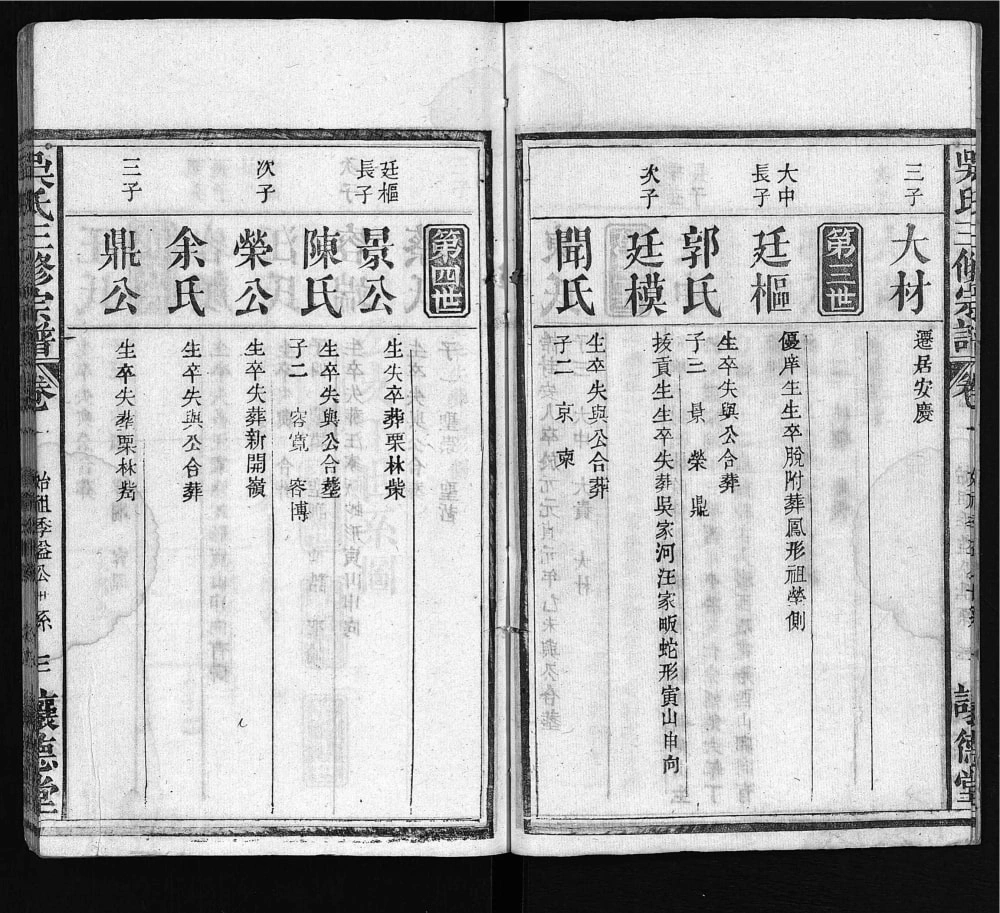 三子
大材
遷居安慶
第三世
大中
長子
廷樞
優庠生生卒脫附葬鳳形祖塋側
郭氏
生卒失與公合葬
子三 景 榮 鼎
次子
廷模
拔貢生生卒失葬吳家河汪家畈蛇形寅山申向
聞氏
生卒失與公合葬
子二 京
讓德堂
吳氏三修宗譜
卷一
三
讓德堂
第四世
廷樞
長子
景公
生卒失葬栗林柴
陳氏
生卒失與公合塟
子二 容寬 容博
次子
榮公
生卒失葬新開嶺
余氏
生卒失與公合葬
三子
鼎公
生卒失葬栗林